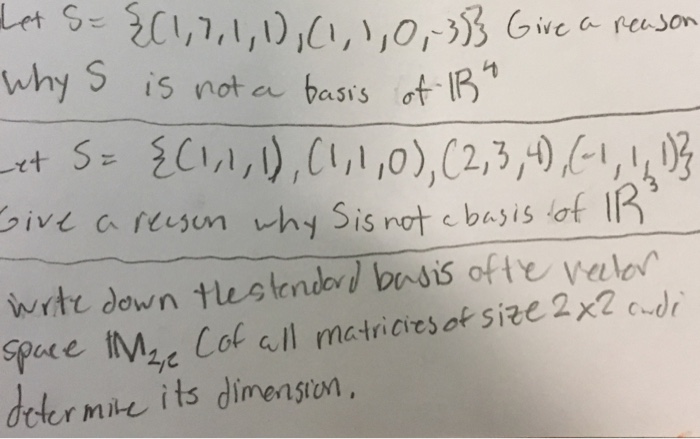 Let S= {(1,7,1,1),(1,1,0,-3)} Give a reason
why S is not a basis of IR⁴
Let S= {(1,1,1),(1,1,0),(2,3,4),(-1,1,1)}
Give a reason why S is not a basis of IR³
write down the standard basis of the vector
space IM₂,₂ (of all matricies of size 2x2 and
determine its dimension.